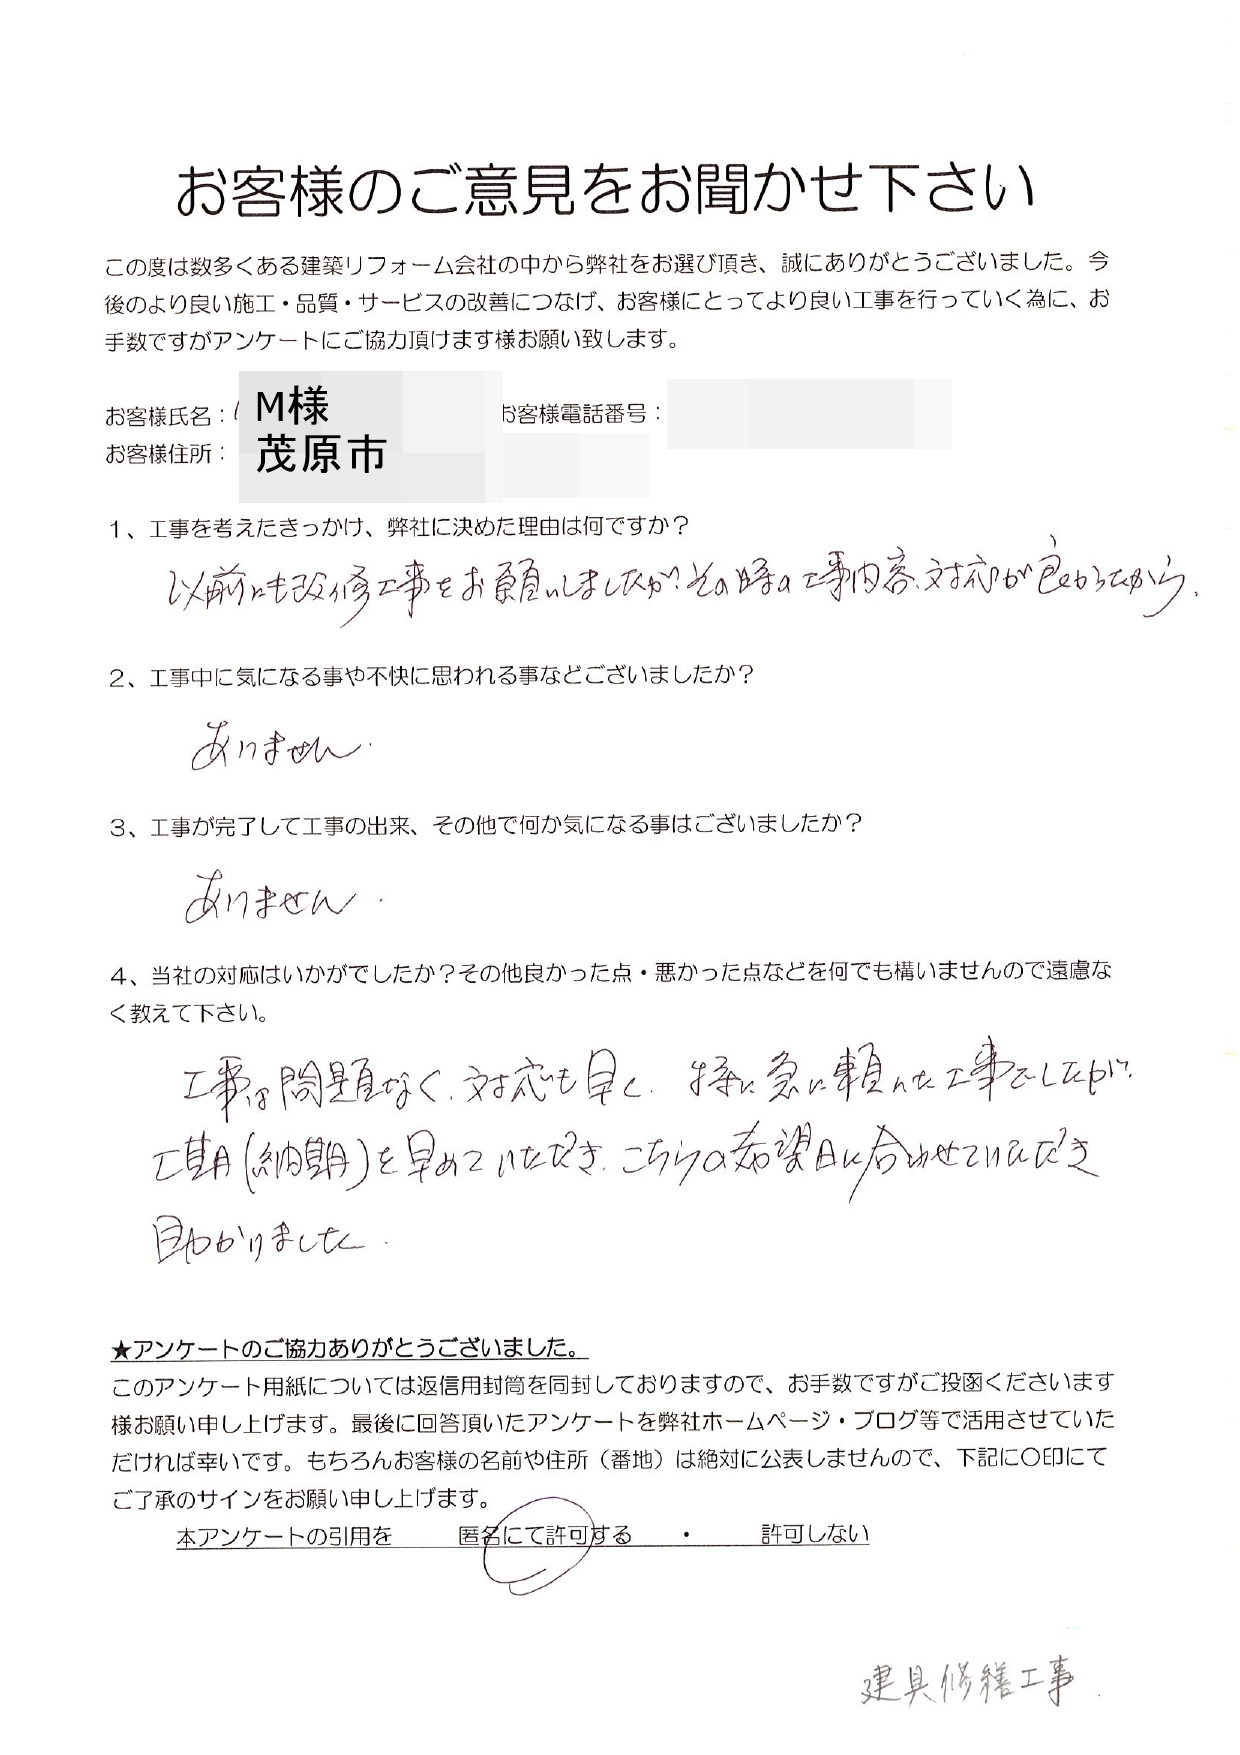 お客様のご意見をお聞かせ下さい
この度は数多くある建築リフォーム会社の中から弊社をお選び頂き、誠にありがとうございました。今
後のより良い施工・品質・サービスの改善につなげ、お客様にとってより良い工事を行っていく為に、お
手数ですがアンケートにご協力頂けます様お願い致します。
お客様氏名： M様 お客様電話番号：
お客様住所： 茂原市
1、工事を考えたきっかけ、弊社に決めた理由は何ですか？
以前にも改修工事をお願いしましたが、その時の工事内容、対応が良かったから。
2、工事中に気になる事や不快に思われる事などございましたか？
ありません.
3、工事が完了して工事の出来、その他で何か気になる事はございましたか？
ありません.
4、当社の対応はいかがでしたか？その他良かった点・悪かった点などを何でも構いませんので遠慮な
く教えて下さい。
工事は問題なく、対応も早く、特に急に頼んだ工事でしたが、
工期(納期)を早めていただき、こちらの希望日に合わせていただき
助かりました.
★アンケートのご協力ありがとうございました。
このアンケート用紙については返信用封筒を同封しておりますので、お手数ですがご投函くださいます
様お願い申し上げます。最後に回答頂いたアンケートを弊社ホームページ・ブログ等で活用させていた
だければ幸いです。もちろんお客様の名前や住所（番地）は絶対に公表しませんので、下記に〇印にて
ご了承のサインをお願い申し上げます。
本アンケートの引用を 匿名にて許可する ・ 許可しない
建具修繕工事.